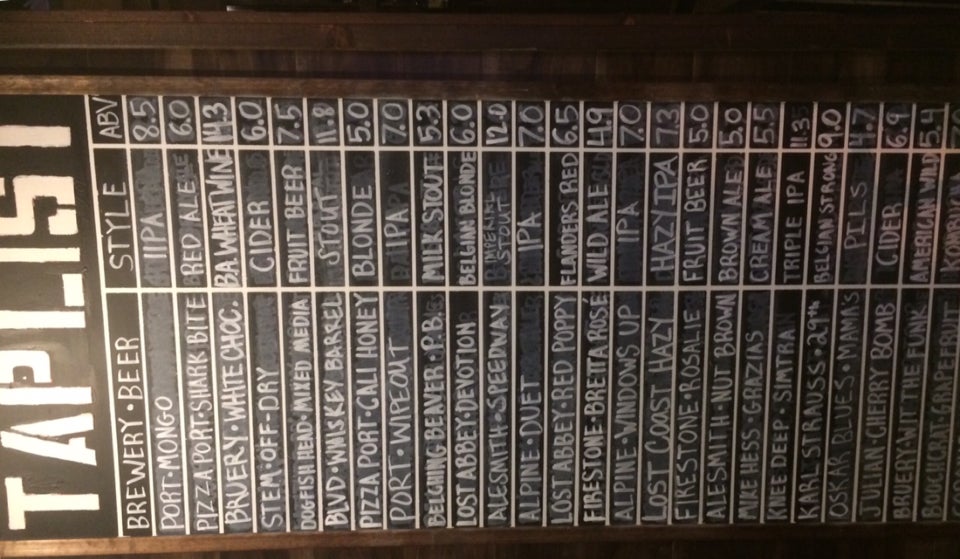 TAPLIST
BREWERY • BEER STYLE ABV
PORT • MONGO IIPA 8.5
PIZZA PORT • SHARK BITE RED ALE 6.0
BRUERY • WHITE CHOC. B.A. WHEATWINE 14.3
STEM • OFF-DRY CIDER 6.0
DOGFISH HEAD • MIXED MEDIA FRUIT BEER 7.5
BLVD • WHISKEY BARREL STOUT 11.8
PIZZA PORT • CALI HONEY BLONDE 5.0
PORT • WIPEOUT IPA 7.0
BELCHING BEAVER • P.B. MILK STOUT 5.3
LOST ABBEY • DEVOTION BELGIAN BLONDE 6.0
ALESMITH • SPEEDWAY IMPERIAL STOUT 12.0
ALPINE • DUET IPA 7.0
LOST ABBEY • RED POPPY FLANDERS RED 6.5
FIRESTONE • BRETTA ROSÉ WILD ALE 4.9
ALPINE • WINDOWS UP IPA 7.0
LOST COAST HAZY HAZY IPA 7.3
FIRESTONE • ROSALIE FRUIT BEER 5.0
ALESMITH • NUT BROWN BROWN ALE 5.0
MIKE HESS • GRAZIAS CREAM ALE 5.5
KNEE DEEP • SIMTRA TRIPLE IPA 11.3
KARL STRAUSS • 29th BELGIAN STRONG 9.0
OSKAR BLUES • MAMA'S PILS 4.7
JULIAN • CHERRY BOMB CIDER 6.9
BRUERY • WIT THE FUNK AMERICAN WILD 5.4
BOOCHCRAFT • GRAPEFRUIT KOMBUCHA 7.0